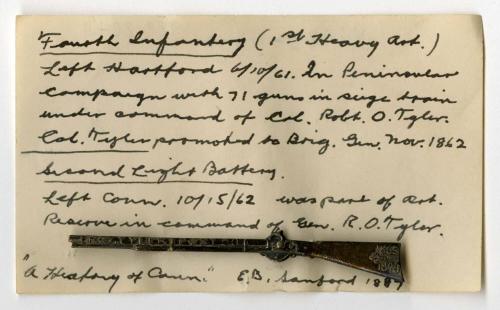 Fourth Infantery (1st Heavy Art.)
Left Hartford 6/10/61. In Peninsular
Campaign with 71 guns in siege train
under command of Col. Robt. O. Tyler.
Col. Tyler promoted to Brig. Gen. Nov. 1862
Second Light Battery.
Left Conn. 10/15/62 was part of Art.
Reserve in command of Gen. R.O. Tyler.
"A History of Conn." E.B. Sanford 1887